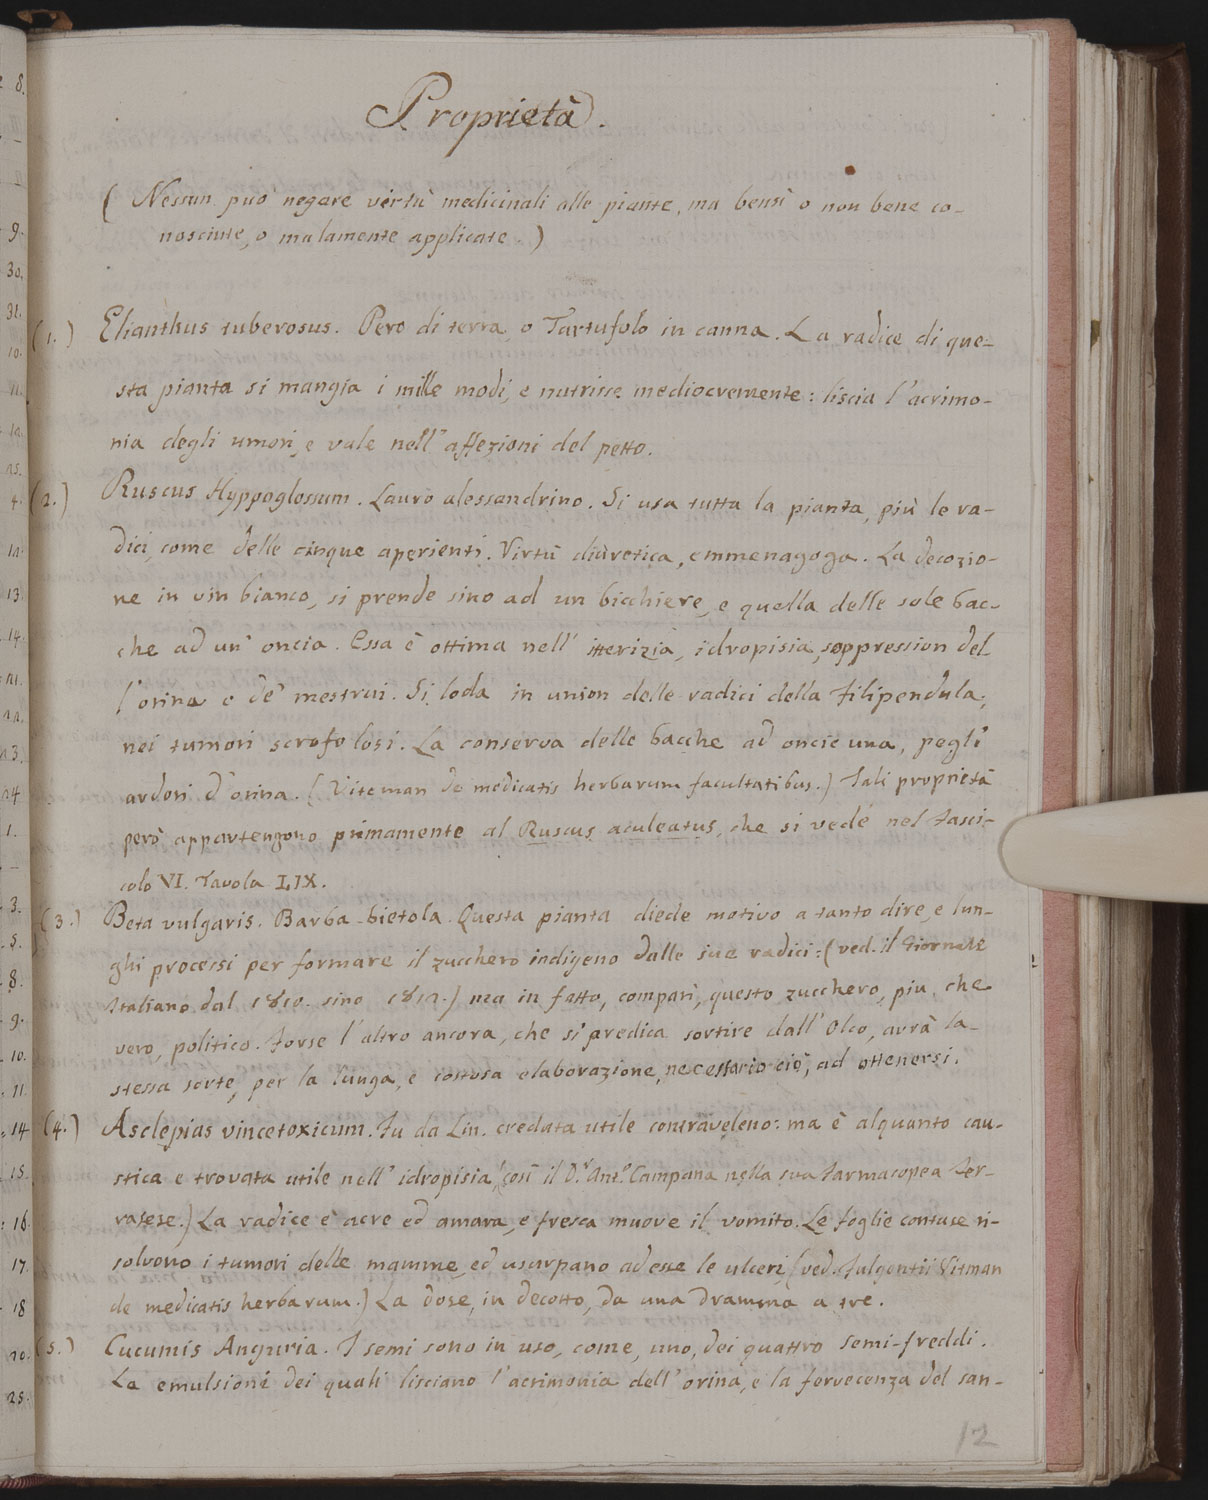 Proprietà.
( Nessun può negare virtù medicinali alle piante, ma bensì o non bene co-
nosciute, o malamente applicate. )
(1.) Elianthus tuberosus. Pero di terra, o Tartufolo in canna. La radice di que-
sta pianta si mangia i mille modi, e nutrisce mediocremente: liscia l'acrimo-
nia degli umori, e vale nell'affezioni del petto.
(2.) Ruscus Hyppoglossum. Lauro alessandrino. Si usa tutta la pianta, più le ra-
dici, come delle cinque aperienti. Virtù diuretica, emmenagoga. La decozio-
ne in vin bianco, si prende sino ad un bicchiere, e quella delle sole bac-
che ad un' oncia. Essa è ottima nell' itterizia, idropisia, soppression del-
l'orina e de' mestrui. Si loda in union delle radici della Filipendula,
nei tumori scrofolosi. La conserva delle bacche ad oncie una, pegli
ardori d'orina. (Viteman de medicatis herbarum facultatibus.) Tali proprietà
però appartengono primamente al Ruscus aculeatus, che si vede nel Fasci-
colo VI. Tavola LIX.
(3.) Beta vulgaris. Barba-bietola. Questa pianta diede motivo a tanto dire, e lun-
ghi processi per formare il zucchero indigeno dalle sue radici: (ved. il Giornale
Italiano dal 1810. sino 1812.) ma in fatto, comparì, questo zucchero, più, che
vero, politico. Forse l'altro ancora, che si predica sortire dall'Olco, avrà la
stessa sorte, per la lunga, e costosa elaborazione, necessario ciò, ad ottenersi.
(4.) Asclepias vincetoxicum. Fu da Lin. credata utile contraveleno: ma è alquanto cau-
stica e trovata utile nell' idropisia (così il Dr. Anto. Campana nella sua Farmacopea Fer-
rarese.) La radice è acre ed amara, e fresca muove il vomito. Le foglie contuse ri-
solvono i tumori delle mamme, ed usurpano ad esse le ulceri, (ved. Fulgentii Vitman
de medicatis herbarum.) La dose, in decotto, da una dramma a tre.
(5.) Cucumis Anguria. I semi sono in uso, come, uno, dei quattro semi-freddi.
La emulsioni dei quali lisciano l'acrimonia dell' orina, e la fervecenza del san-
12